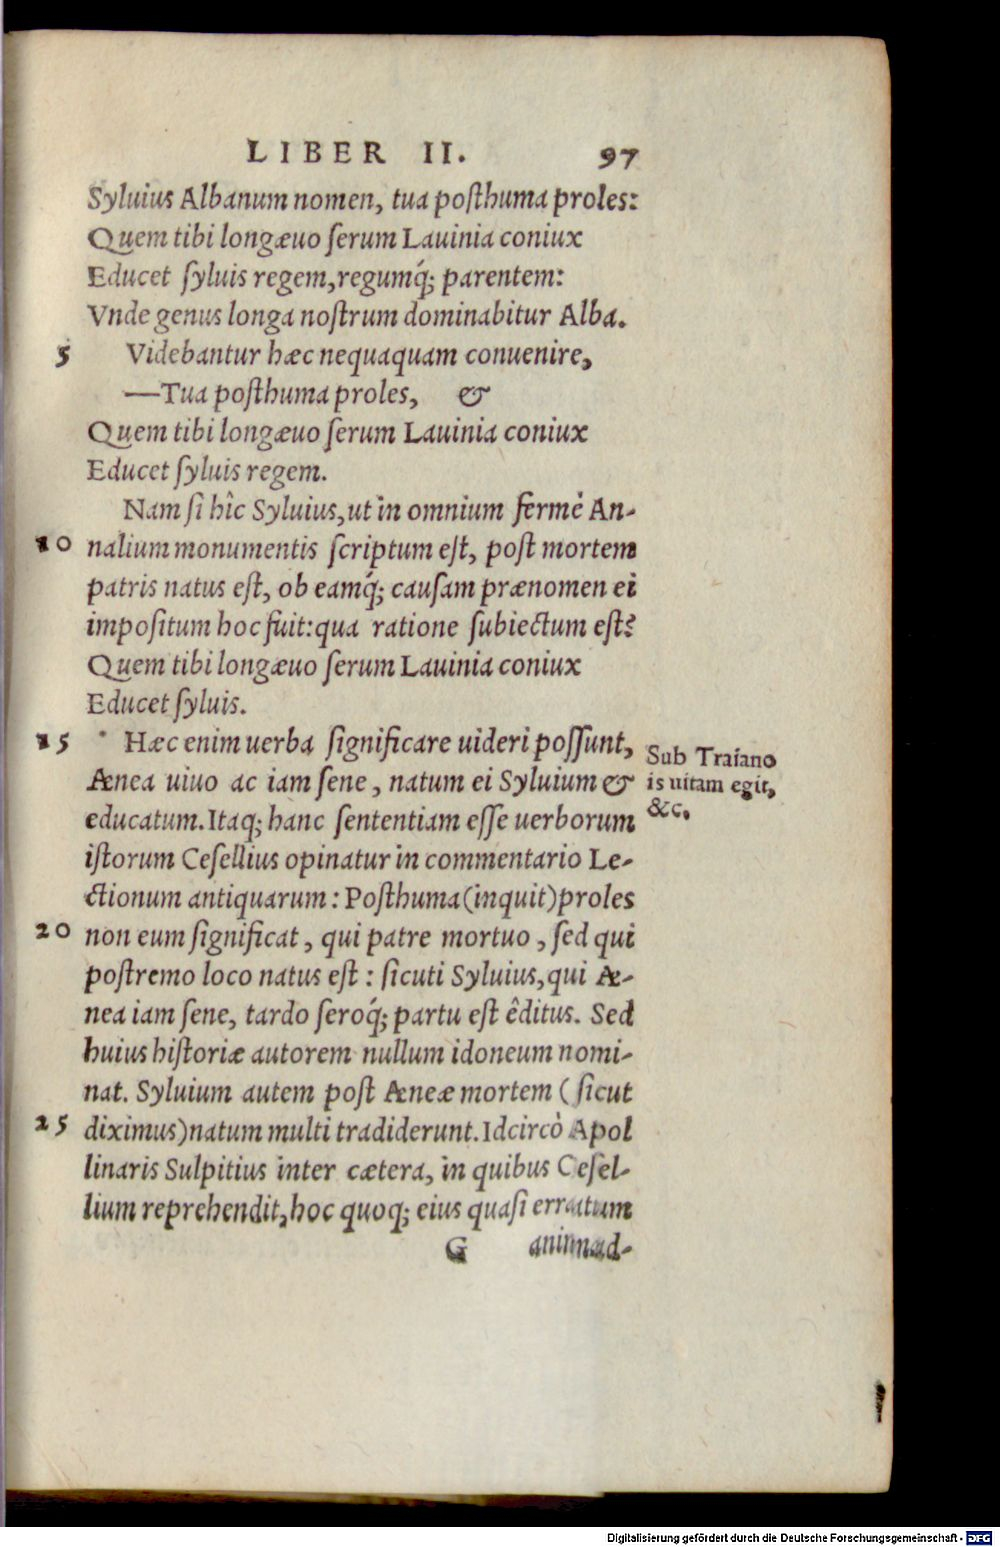 LIBER II. 97
Syluius Albanum nomen, tua posthuma proles:
Quem tibi longæuo serum Lauinia coniux
Educet syluis regem, regumq́; parentem:
Vnde genus longa nostrum dominabitur Alba.
5 Videbantur hæc nequaquam conuenire,
—Tua posthuma proles, &
Quem tibi longæuo serum Lauinia coniux
Educet syluis regem.
Nam si hîc Syluius, ut in omnium fermè An-
10 nalium monumentis scriptum est, post mortem
patris natus est, ob eamq́; causam prænomen ei
impositum hoc fuit: qua ratione subiectum est?
Quem tibi longæuo serum Lauinia coniux
Educet syluis.
15 * Hæc enim uerba significare uideri possunt,
Ænea uiuo ac iam sene, natum ei Syluium &
educatum. Itaq; hanc sententiam esse uerborum
istorum Cesellius opinatur in commentario Le-
ctionum antiquarum: Posthuma (inquit) proles
20 non eum significat, qui patre mortuo, sed qui
postremo loco natus est: sicuti Syluius, qui Æ-
nea iam sene, tardo seroq́; partu est êditus. Sed
huius historiæ autorem nullum idoneum nomi-
nat. Syluium autem post Æneæ mortem (sicut
25 diximus) natum multi tradiderunt. Idcircò Apol
linaris Sulpitius inter cætera, in quibus Cesel-
lium reprehendit, hoc quoq; eius quasi erratum
G animad-
Sub Traiano
is uitam egit,
&c.
Digitalisierung gefördert durch die Deutsche Forschungsgemeinschaft - DFG